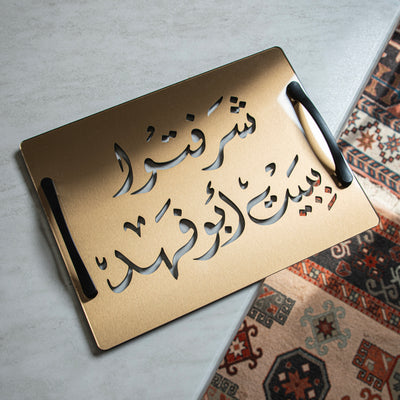 شرفتوا
ببيت أبو فهد